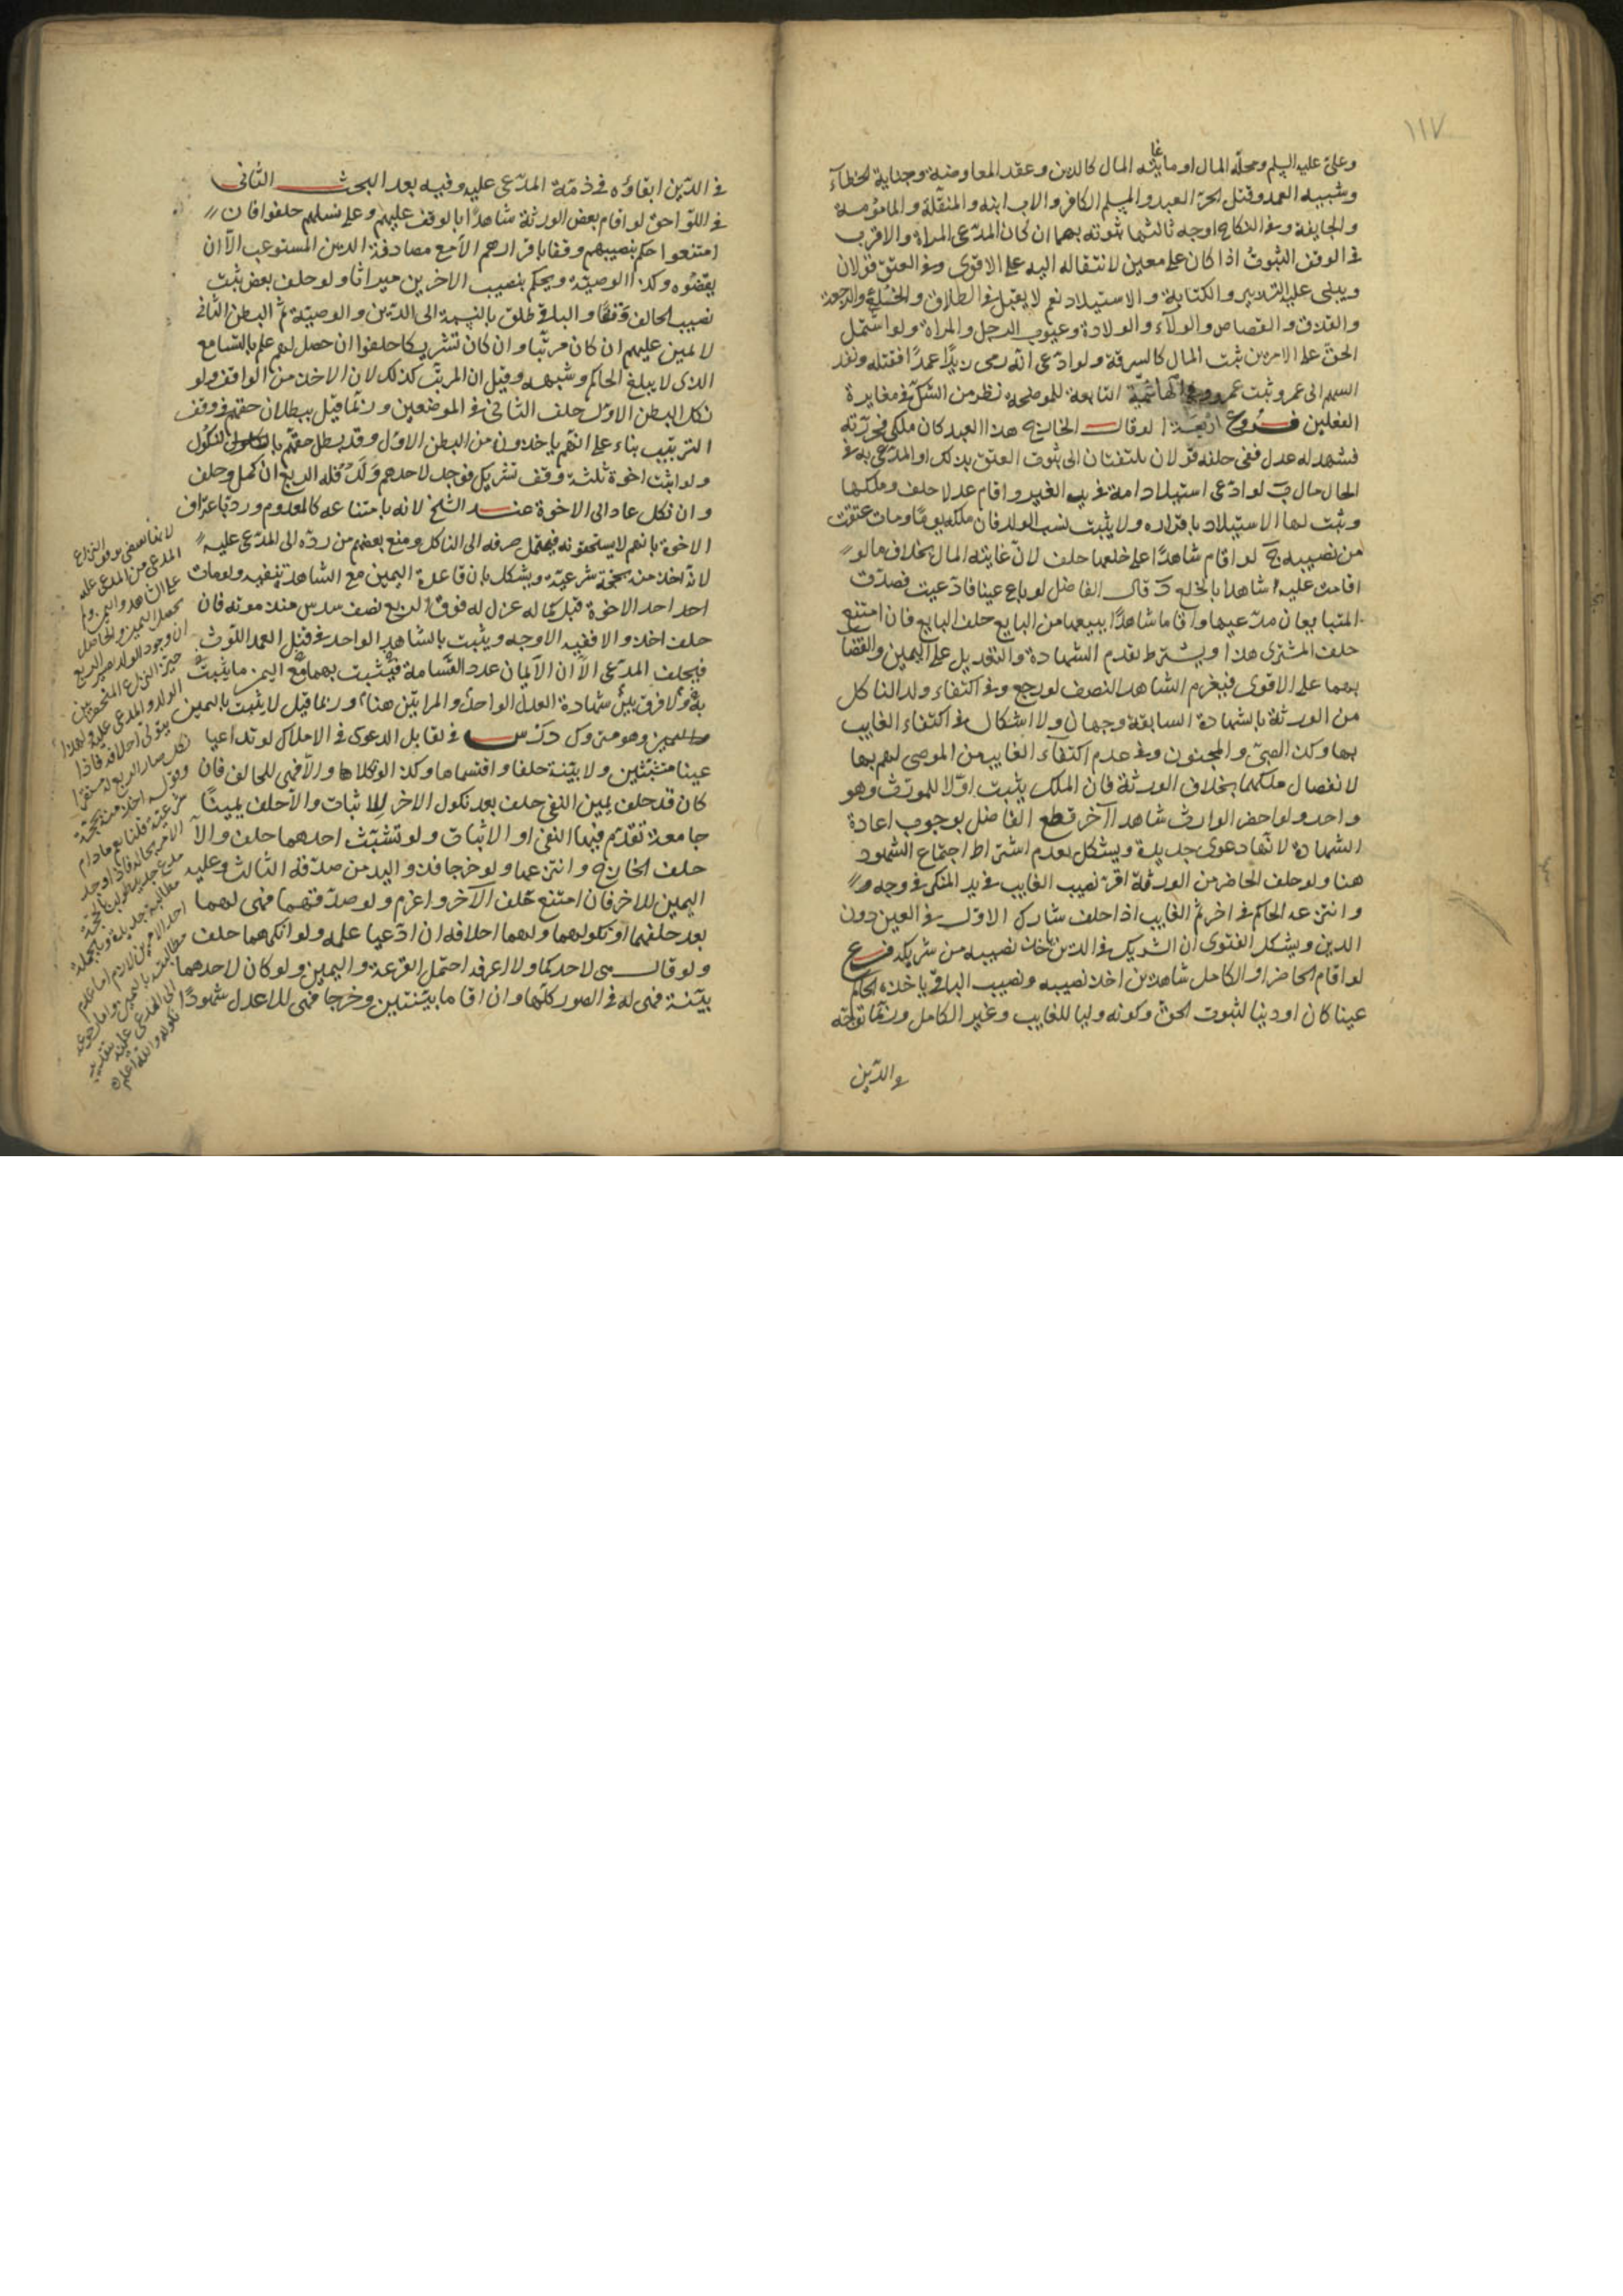 ١١٧
وعلى عليه السلم ومحله المال او ما غايته المال كالدين وعقد المعاوضة وجناية الخطاء
وشبيه العمد وقتل الحرّ العبد والمسلم الكافر والاب ابنه والمنقّلة والمامومة
والجايفة وفى النكاح اوجه ثالثها ثبوته بهما ان كان المدّعى المراة والاقرب
فى الوقف الثبوت اذا كان على معين لانتقاله اليه على الاقوى وفى العتق قولان
ويبنى عليه التدبير والكتابة والاستيلاد نعم لا يقبل فى الطلاق والخلع والرجعة
والقذف والقصاص والولآء والولادة وعيوب الرجل والمراة ولو اشتمل
الحق على الامرين ثبت المال كالسرقة ولو ادّعى انه رمى زيدًا عمدًا فقتله ونفذ
السهم الى عمرو ثبت عمرو وفى الهاشمة التابعة للموضحة نظر من الشك فى مغايرة
الفعلين فروع اربعة ا لو قال الخارج هذا العبد كان ملكى فحرّرته
فشهد له عدل ففى حلفه قولان يلتفتان الى ثبوت العتق بذلك او المدّعى به فى
الحال مال ب لو ادّعى استيلاد امة فى يد الغير واقام عدلا حلف وملكها
وثبت لها الاستيلاد باقراره ولا يثبت نسب الولد فان ملكه يومًا ومات عتقت
من نصيبه ج لو اقام شاهدًا على خلعها حلف لانّ غايته المال بخلاف ما لو
اقامت عليه شاهدا بالخلع د قال الفاضل لو باع عينا فادّعيت فصدّق
المتبايعان مدّعيها واقاما شاهدًا ببيعها من البايع حلف البايع فان امتنع
حلف المشترى هذا ويشترط تقدم الشهادة والتعديل على اليمين والقضا
بهما على الاقوى فيغرم الشاهد النصف لو رجع وفى اكتفاء ولد الناكل
من الورثة بالشهادة السابقة وجهان ولا اشكال فى اكتفاء الغايب
بها وكذا الصبىّ والمجنون وفى عدم اكتفآء الغايب من الموصى لهم بها
لانفصال ملكهما بخلاف الورثة فان الملك يثبت اوّلا للمورّث وهو
واحد ولو احضر الوارث شاهدا آخر قطع الفاضل بوجوب اعادة
الشهادة لانها دعوى جديدة ويشكل بعدم اشتراط اجتماع الشهود
هنا ولو حلف الحاضر من الورثة اقرّ نصيب الغايب فى يد المنكر فى وجه
وانتزعه الحاكم فى اخر ثم الغايب اذا حلف شارك الاول فى العين دون
الدين ويشكل الفتوى ان الشريك فى الدين ياخذ نصيبه من شريكه فرع
لو اقام الحاضر او الكامل شاهدين اخذ نصيبه ونصيب الباقى ياخذه الحاكم
عينا كان او دينا لثبوت الحق وكونه وليا للغايب وغير الكامل وربّما توجّه
والدّين
فى الدّين ابقاؤه فى ذمّة المدّعى عليه وفيه بعد البحث الثانى
فى اللواحق لو اقام بعض الورثة شاهدًا بالوقف عليهم وعلى نسلهم حلفوا فان
امتنعوا حكم بنصيبهم وقفا باقرارهم الا مع مصادفة الدين المستوعب الا ان
يقضوه وكذا الوصيّة ويحكم بنصيب الاخرين ميراثا ولو حلف بعض ثبت
نصيب الحالف وقفًا والباقى طلق بالنسبة الى الدّين والوصيّة ثم البطن الثانى
لا يمين عليهم ان كان مرتّبا وان كان تشريكا حلفوا ان حصل لهم علم بالتسامع
الذى لا يبلغ الحاكم وشبهه وقيل ان المرتب كذلك لان الاخذ من الواقف ولو
نكل البطن الاوّل حلف الثانى فى الموضعين وربّما قيل ببطلان حقهم فى وقف
الترتيب بناء على انهم ياخذون من البطن الاول وقد بطل حقهم بالنكول
ولو اثبت اخوة ثلثة وقف تشريك فوجد لاحدهم ولد فله الربع ان كمل وحلف
وان نكل عاد الى الاخوة عند الشيخ لانه بامتناعه كالمعدوم وردّ باعتراف
الاخوة بانهم لا يستحقونه فيحتمل صرفه الى الناكل ومنع بعضهم من ردّه الى المدّعى عليه
لانه اخذ منه بحجّة شرعيّة ويشكل بان قاعدة اليمين مع الشاهد تنفيه ولو مات
احد الاخوة قبل كماله عزل له فوق الربع نصف سدس منذ موته فان
حلف اخذ والا ففيه الاوجه ويثبت بالشاهد الواحد فى قتل العمد اللوث
فيحلف المدّعى الا ان الايمان عدد القسامة فيثبت بهما مع اليمين ما يثبت
به ولا فرق بين شهادة العدل الواحد والمراتين هنا وربما قيل لا يثبت باليمين
وهو متروك درس فى تقابل الدعوى فى الاملاك لو تداعيا
عينا متشبّثين ولا بيّنة حلفا واقتسماها وكذا لو نكلا والا فهى للحالف فان
كان قد حلف يمين النفى حلف بعد نكول الاخر للاثبات والا حلف يمينًا
جامعة تقدّم فيها النفى او الاثبات ولو تشبّث احدهما حلف والا
حلف الخارج وانتزعها ولو خرجا فذو اليد من صدّقه الثالث وعليه
اليمين للاخر فان امتنع حلف الآخر واغرم ولو صدّقهما فهى لهما
بعد حلفهما او نكولهما ولهما احلافه ان ادّعيا علمه ولو انكرهما حلف
ولو قال هى لاحدكما ولا اعرفه احتمل القرعة واليمين ولو كان لاحدهما
بيّنة فهى له فى الصور كلّها وان اقاما بيّنتين وخرجا فهى للاعدل شهودًا
المدعى من المدعى عليه
على الشاهد واليمين ولم
يحصل اليمين والحاصل
ان وجود الولد يصير الربع
الولد والمدعى عليه ولهذا
يتولى احلافه فاذا
نكل صار الربع
وقوله اخذ منه بحجة
شرعية قلنا نعم ما دام
الامر بحاله فاذا وجد
احد الامرين لازم اما عدم
مطالبته باليمين واما رجوعه
الى المدعى عليه بتقدير
نكوله والله اعلم